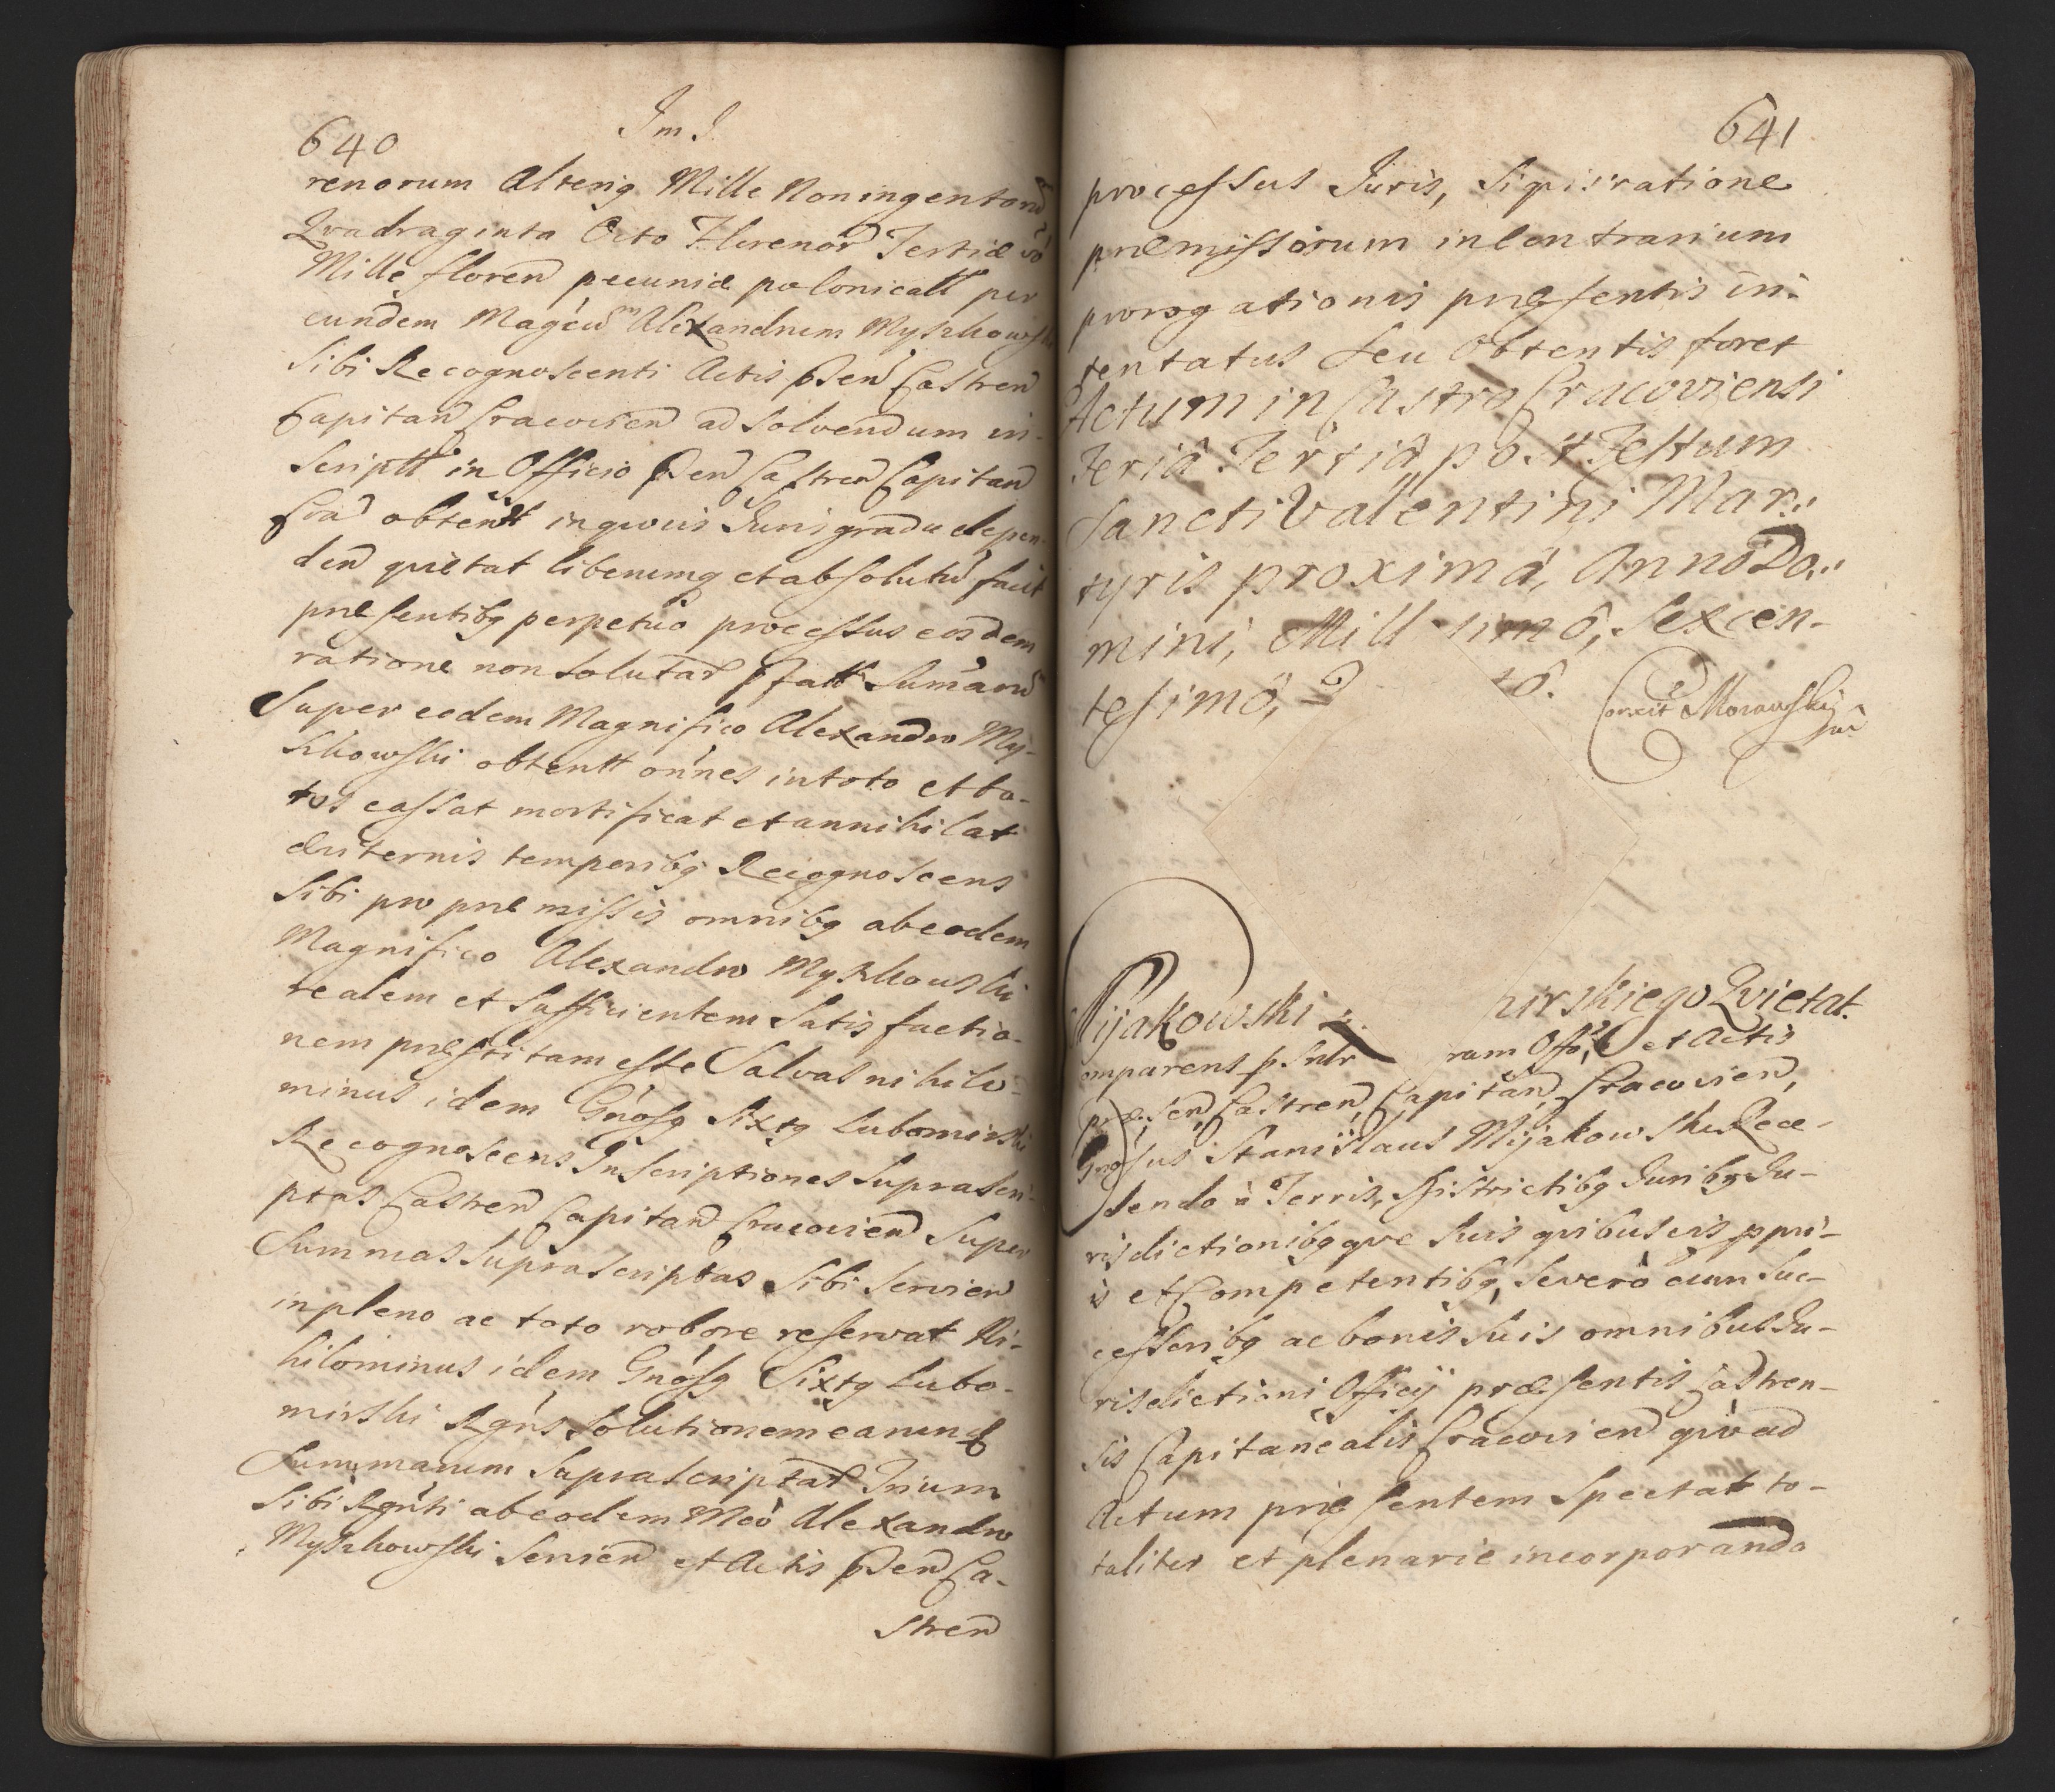 640
Im J.
renorum Alterig Mille Noningentord
Qvadraginta Octo Florenor Tertiæ vo
Mille floren pecuniæ polonicall per
eundem Magcum Alexandrum Myszkowski
Sibi Recognoscenti Actis pden Castren
Capitan Cracovien ad solvendum in-
scriptt in Officio pden Castren Capitan
Cra obtentt inqvovis Juris gradu depen-
den qvietat liberumq et absolutu facit
præsentibg perpetuo processus eosdem
ratione non solutar pfatt Sumaru
Super eodem Magnifico Alexandro My-
szkowski obtentt omnes in toto et to-
tos cassat mortificat et annihilat
æviternis temporibg Recognoscens
Sibi pro præmissis omnibg ab eodem
Magnifico Alexandro Myszkowski
realem et sufficientem Satisfactio-
nem præstitam esse Salvas nihilo-
minus idem Gnosg Sixtg Lubomirski
Recognoscens Inscriptiones Suprascri-
ptas Castren Capitan Cracovien Super
Summas Suprascriptas Sibi Servien
in pleno ac toto robore reservat Ni-
hilominus idem Gnosg Sixtg Lubo-
mirski Rgns Solutionem earund
Summarum Suprascriptar Trium
Sibi Rgnti ab eodem Mco Alexandro
Myszkowski Servien et Actis pden Ca-
stren
641
processus Juris, Siqvis ratione
præmissorum in Contrarium
prorogationis præsentis in-
tentatus seu Obtentis foret
Actum in Castro Cracoviensi
Feriâ Tertiâ post Festum
Sancti Valentini Mar-
tyris proximâ, Anno Do-
mini, Mill imô, Sexcen-
tesimô, tô.
Correxit Morawski
Mijakowski hirskiego Qvietat.
omparens p. ram Offo, et Actis
præsen Castren, Capitan, Cracovien,
Gnosus Stanislaus Mijakowski Rece-
dendo à Terris, Districtibg Juribg Ju-
risdictionibgqve suis qvibusvis ppri-
is et Competentibg, Se verò cum Suc-
cessoribg ac bonis Suis omnibus Ju-
risdictioni Officij præsentis Castren-
sis Capitanealis Cracovien qvo ad
Actum præsentem Spectat to-
taliter et plenarie incorporando